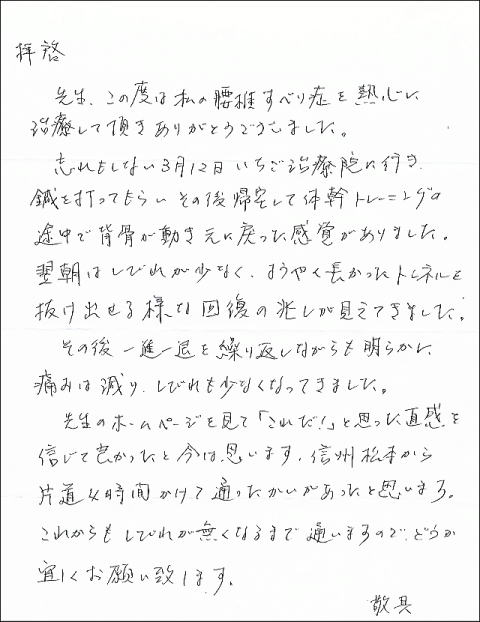 拝啓
先生、この度は私の腰椎すべり症を熱心に
治療して頂きありがとうございました。
忘れもしない3月12日いちご治療院に行き、
鍼を打ってもらいその後帰宅して体幹トレーニングの
途中で背骨が動き元に戻った感覚がありました。
翌朝はしびれが少なく、ようやく長かったトンネルを
抜け出せる様な回復の兆しが見えてきました。
その後一進一退を繰り返しながらも明らかに
痛みは減り、しびれも少なくなってきました。
先生のホームページを見て「これだ!」と思った直感を
信じて良かったと今は思います。信州松本から
片道4時間かけて通ったかいがあったと思います。
これからもしびれが無くなるまで通いますので、どうか
宜しくお願い致します。
敬具